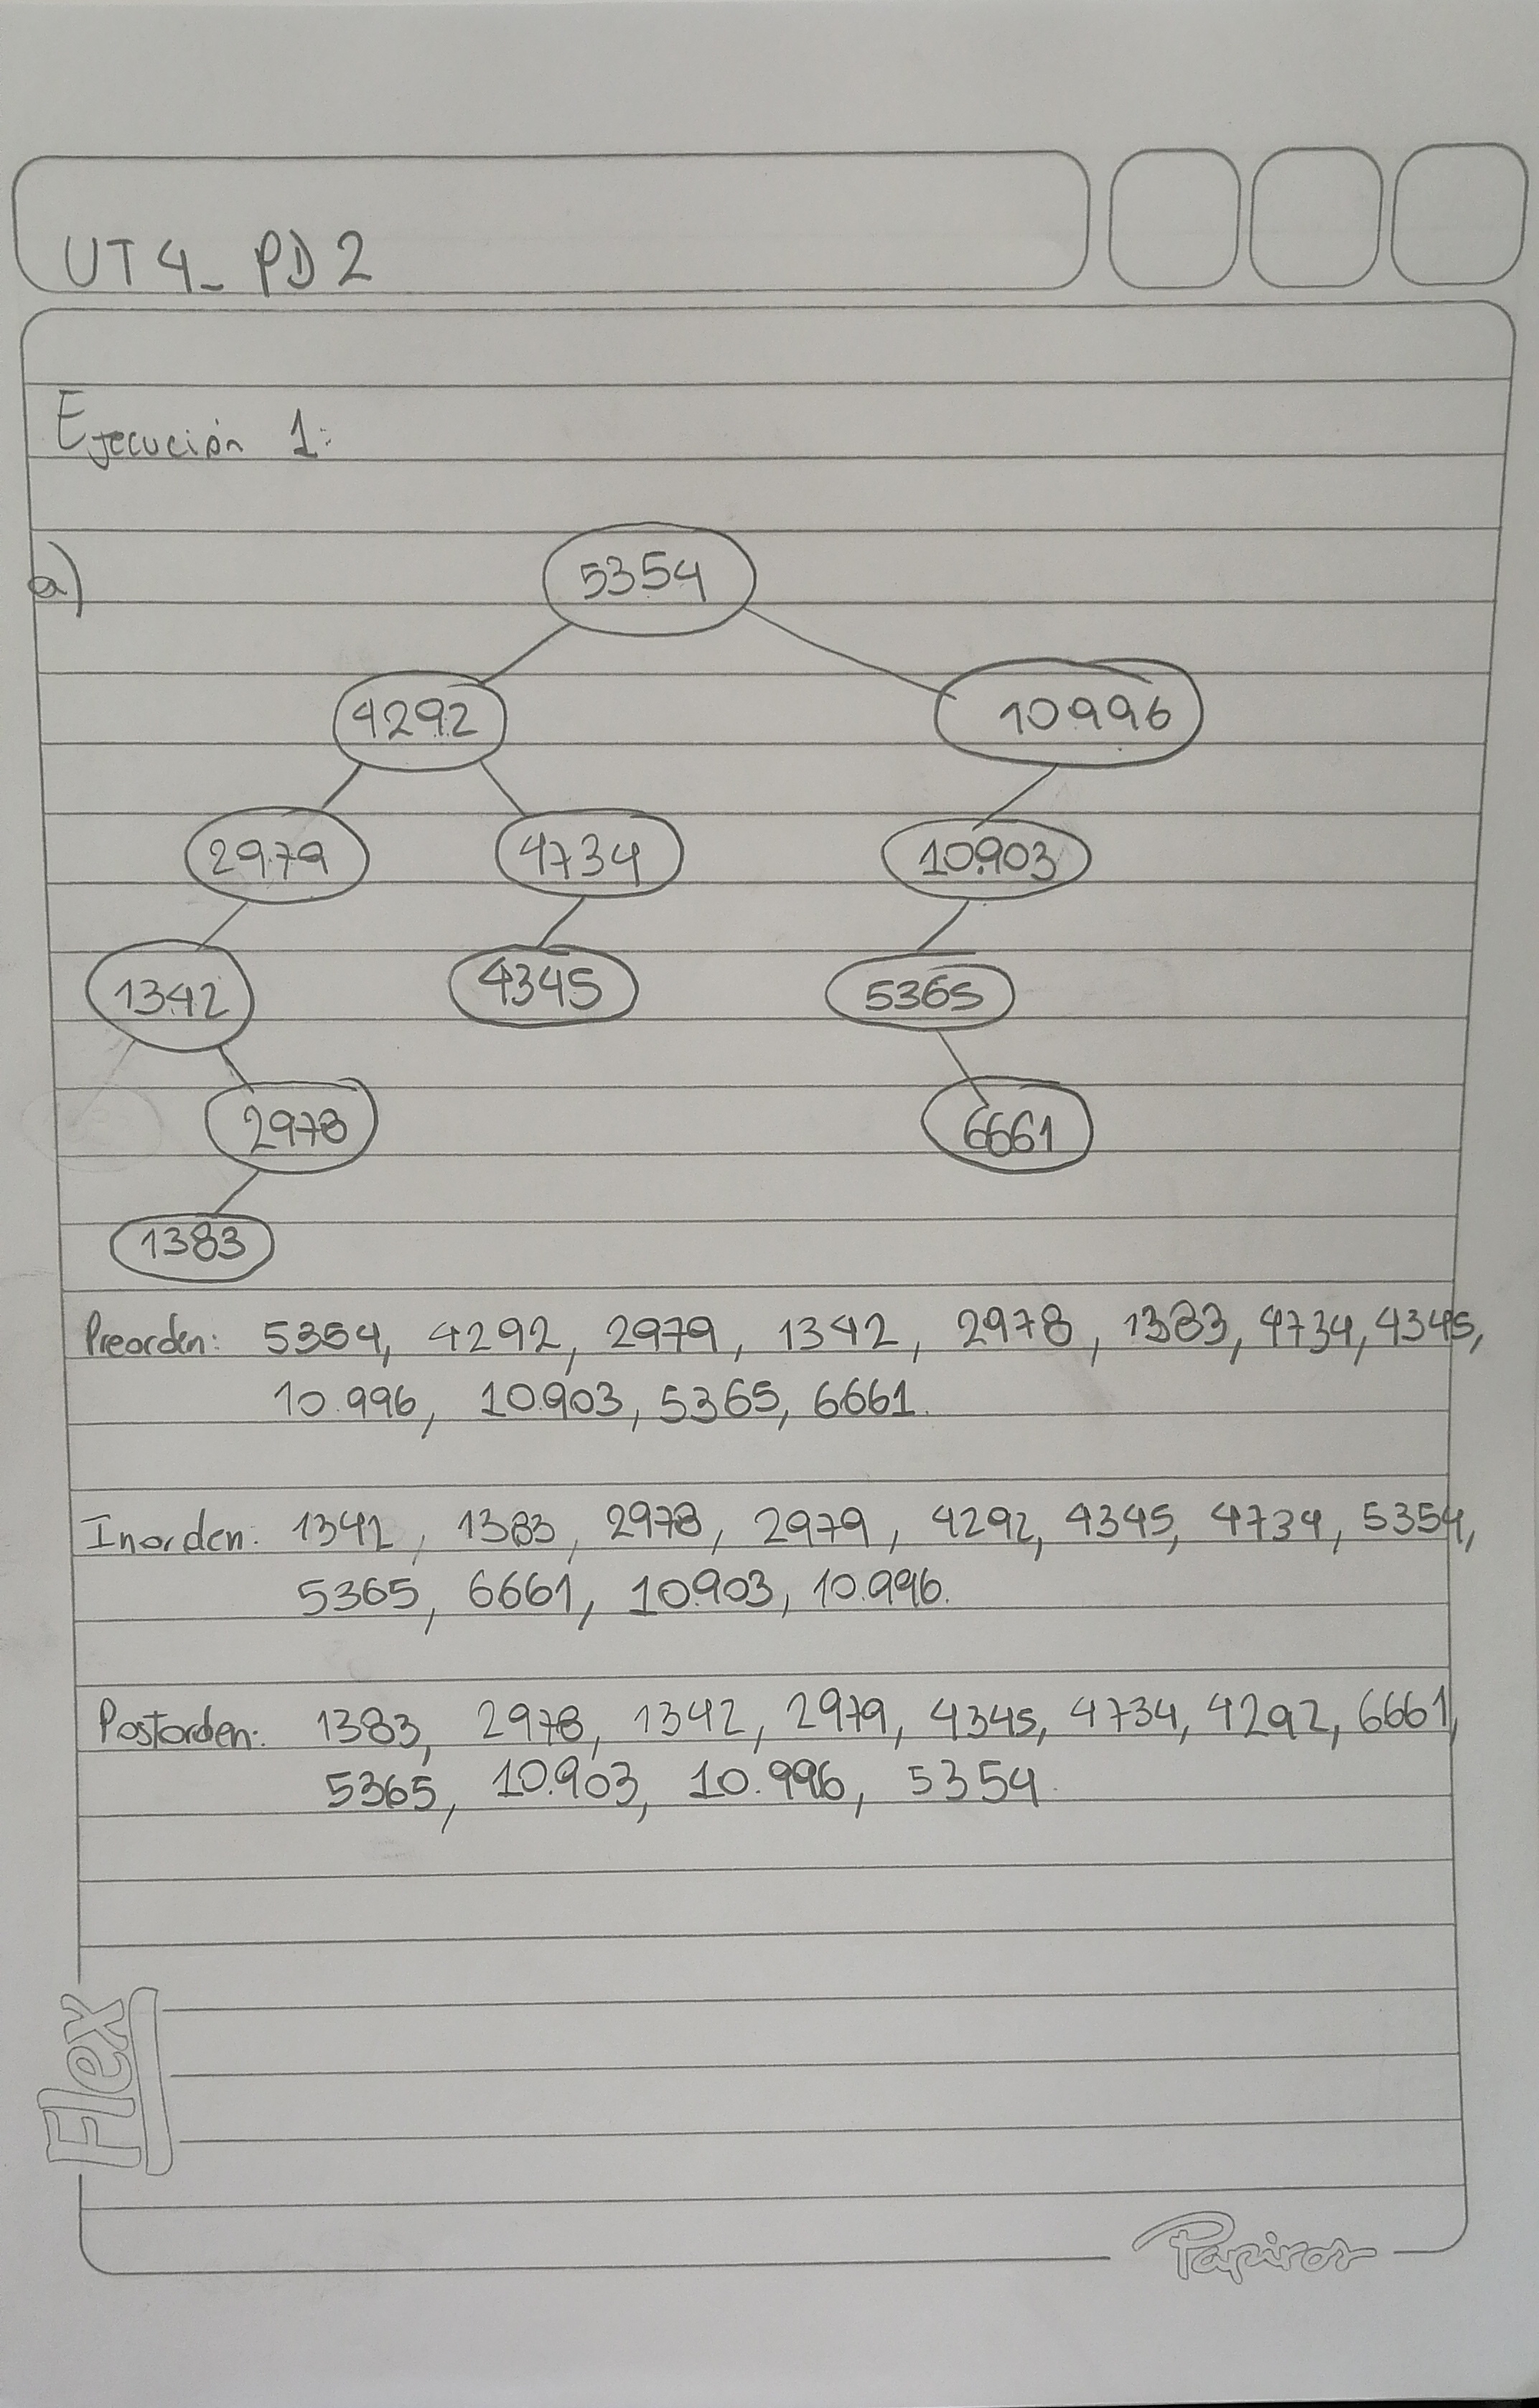 UT4_PD2
Ejecución 1:
a)
5354
4292 10996
2979 4734 10.903
1342 4345 5365
2978 6661
1383
Preorden: 5354, 4292, 2979, 1342, 2978, 1383, 4734, 4345,
10.996, 10.903, 5365, 6661.
Inorden: 1342, 1383, 2978, 2979, 4292, 4345, 4734, 5354,
5365, 6661, 10.903, 10.996.
Postorden: 1383, 2978, 1342, 2979, 4345, 4734, 4292, 6661,
5365, 10.903, 10.996, 5354.
Flex
Papiros